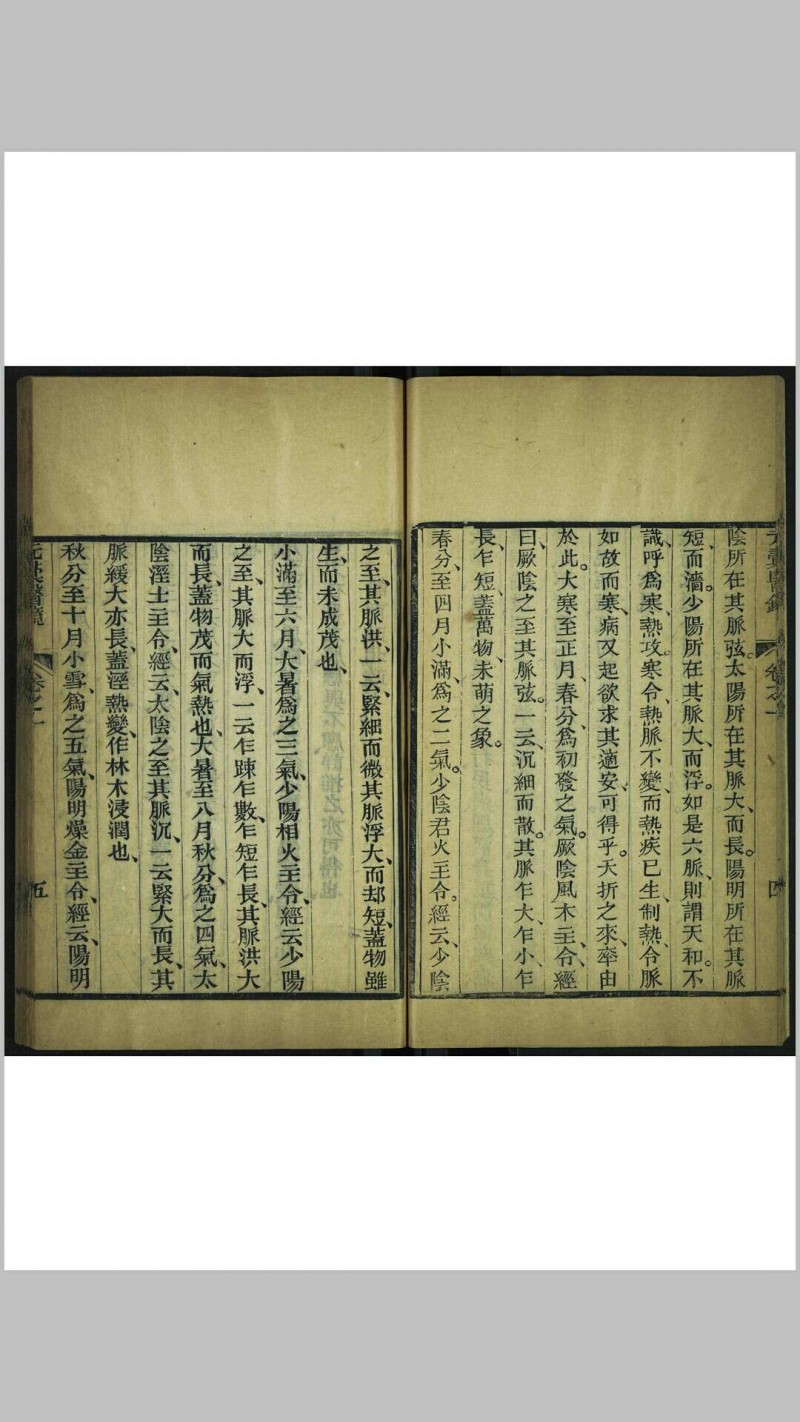 卷之一
四
陰所在其脈弦。太陽所在其脈大、而長。陽明所在其脈
短、而濇。少陽所在其脈大、而浮。如是六脈、則謂天和。不
識、呼爲寒、熱、攻、寒令、熱脈不變、而熱疾已生、制熱、令脈
如故而寒、病又起欲求其適安、可得乎。夭折之來、率由
於此。大寒至正月、春分、爲初發之氣。厥陰風木主、令、經
曰、厥陰之至其脈弦。一云、沉細而散。其脈乍大、乍小、乍
長、乍短、蓋萬物、未萌之象。
春分、至四月小滿、爲之二氣。少陰君火主令。經云、少陰
之至、其脈洪、一云、緊細而微其脈浮大、而却短、蓋物雖
生、而未成茂也、
小滿至六月、大暑爲之三氣、少陽相火主令、經云少陽
之至、其脈大而浮、一云乍踈乍數、乍短乍長、其脈洪大
而長、蓋物茂而氣熱也、大暑至八月秋分、爲之四氣、太
陰溼土主令、經云、太陰之至其脈沉、一云緊大而長、其
脈緩大亦長、蓋溼熱變、作林木浸潤也、
秋分至十月小雪、爲之五氣、陽明燥金主令、經云、陽明
卷之一
五